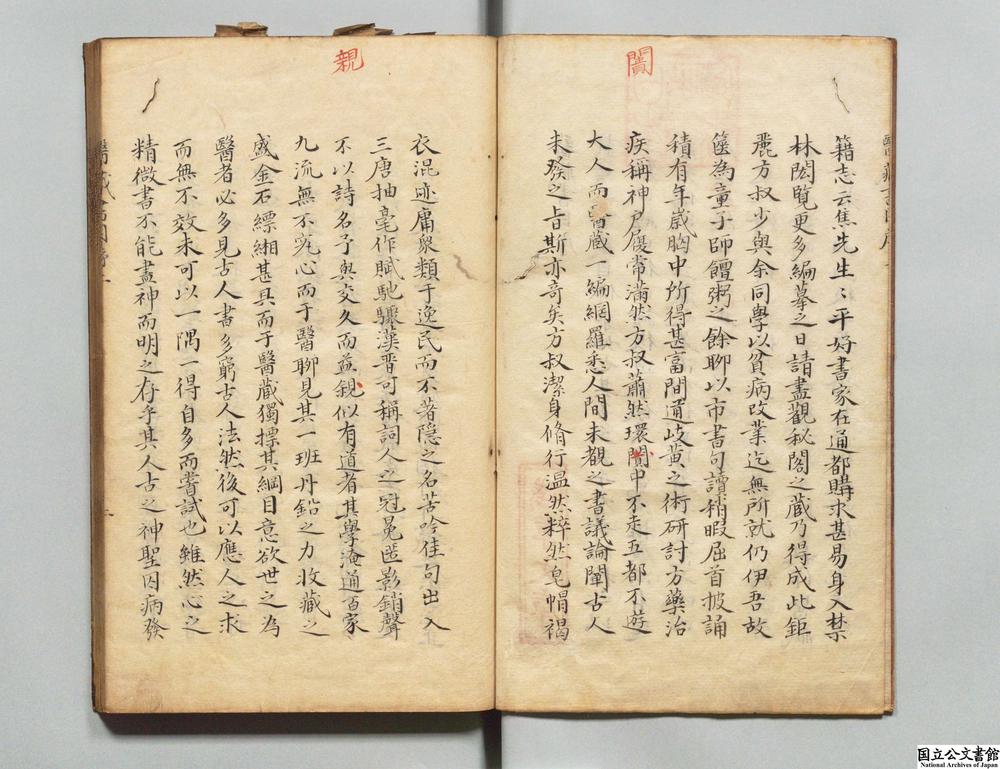 闠
籍志云焦先生〻平好書家在通都購求甚易身入禁
林閎覽更多編摹之日請盡觀秘閣之藏乃得成此鉅
麗方叔少與余同學以貧病改業迄無所就仍伊吾故
篋為童子師饘粥之餘聊以市書句讀稍暇屈首披誦
積有年歲胸中所得甚富間遹岐黄之術研討方藥治
疾稱神屨常滿然方叔蕭然環闠中不走五都不遊
大人而醫蔵一編網羅悉人間未覩之書議論闡古人
未發之旨斯亦竒矣方叔潔身脩行温然粹然皂帽褐
親
衣混迹庸衆類于逸民而不著隠之名苦吟佳句出入
三唐抽毫作賦馳驟漢晋可稱詞人之冠冕匿影銷聲
不以詩名予與交久而益親似有道者其學淹通百家
九流無不究心而于醫聊見其一班丹鉛之力收藏之
盛金石縹緗甚具而于醫蔵獨摽其綱目意欲世之為
醫者必多見古人書多窮古人法然後可以應人之求
而無不效未可以一隅一得自多而嘗試也雖然心之
精微書不能盡神而明之存乎其人古之神聖因病發
国立公文書館
National Archives of Japan